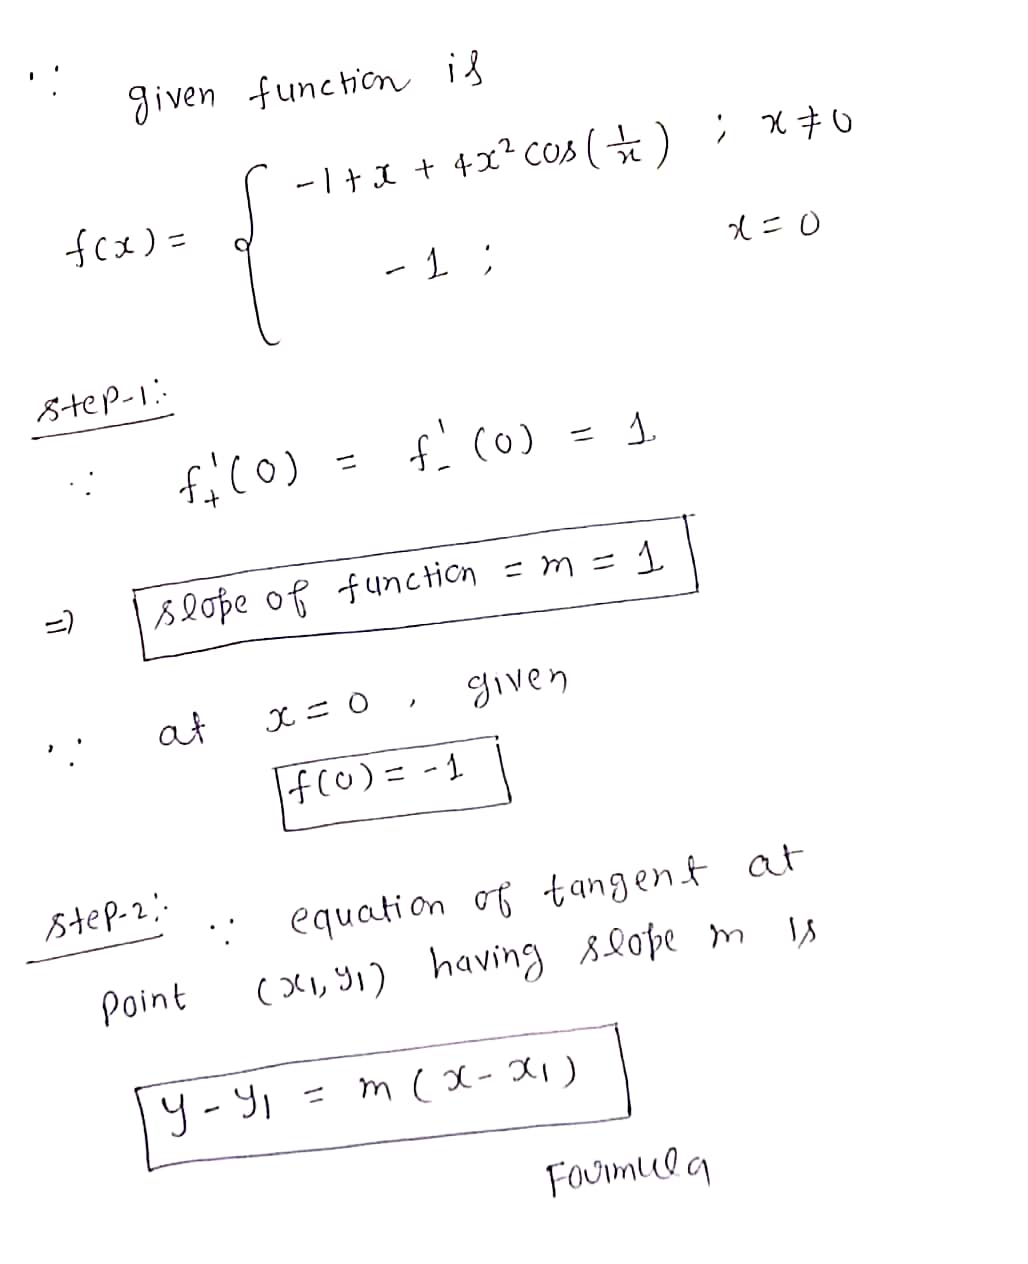 ∵ given function is
f(x) = { -1 + x + 4x² cos(1/x) ; x ≠ 0
-1 ; x = 0
Step-1:
∵ f₊'(0) = f₋'(0) = 1
⇒ slope of function = m = 1
∵ at x = 0 , given
f(0) = -1
Step-2: ∵ equation of tangent at
Point (x₁, y₁) having slope m is
y - y₁ = m (x - x₁)
Fourmula